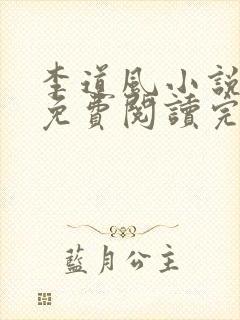 李道風小說
免費閱讀完
藍月公主